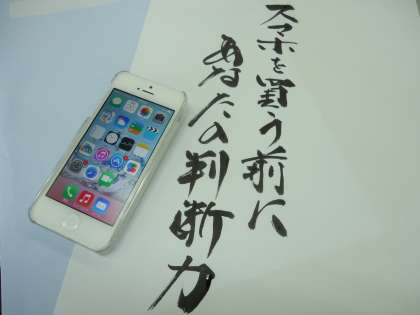 スマホを買う前に
あなたの判断力